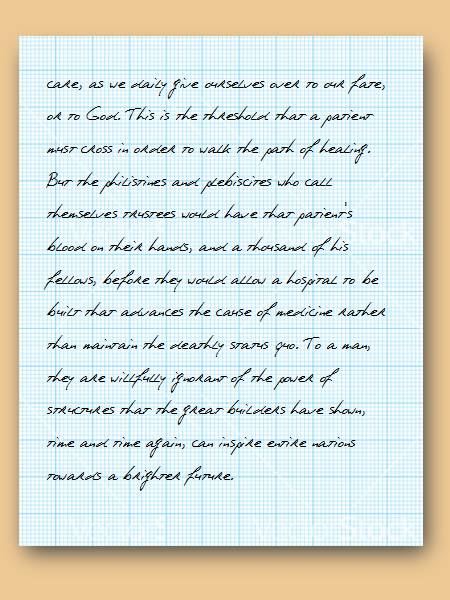 care, as we daily give ourselves over to our fate,
or to God. This is the threshold that a patient
must cross in order to walk the path of healing.
But the philistines and plebiscites who call
themselves trustees would have that patient's
blood on their hands, and a thousand of his
fellows, before they would allow a hospital to be
built that advances the cause of medicine rather
than maintain the deathly status quo. To a man,
they are willfully ignorant of the power of
structures that the great builders have shown,
time and time again, can inspire entire nations
towards a brighter future.
VectorStock